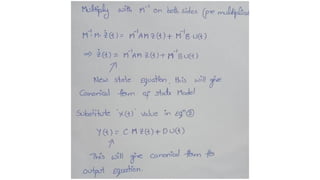 Multiply with M⁻¹ on both sides (pre multiplication)
M⁻¹M Ż(t) = M⁻¹AM Z(t) + M⁻¹B U(t)
⇒ Ż(t) = M⁻¹AM Z(t) + M⁻¹B U(t)
New state equation, this will give
Canonical form of state Model
Substitute 'X(t)' value in eqⁿ ②
Y(t) = C M Z(t) + D U(t)
This will give canonical form to
output equation.